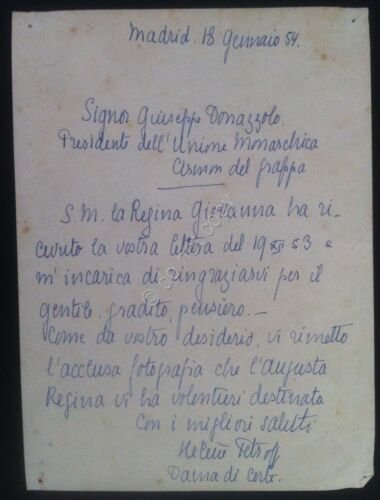 Madrid. 18 Gennaio 54.
Signor Giuseppe Donazzolo.
Presidente dell'Unione Monarchica
Crismon del grappa
S. M. la Regina Giovanna ha ri-
cevuto la vostra lettera del 19 XII 53 e
m'incarica di ringraziarvi per il
gentile, gradito, pensiero. —
Come da vostro desiderio, vi rimetto
l'acclusa fotografia che l'augusta
Regina vi ha volontieri destinata
Con i migliori saluti
Helene Petroff
Dama di Corte.